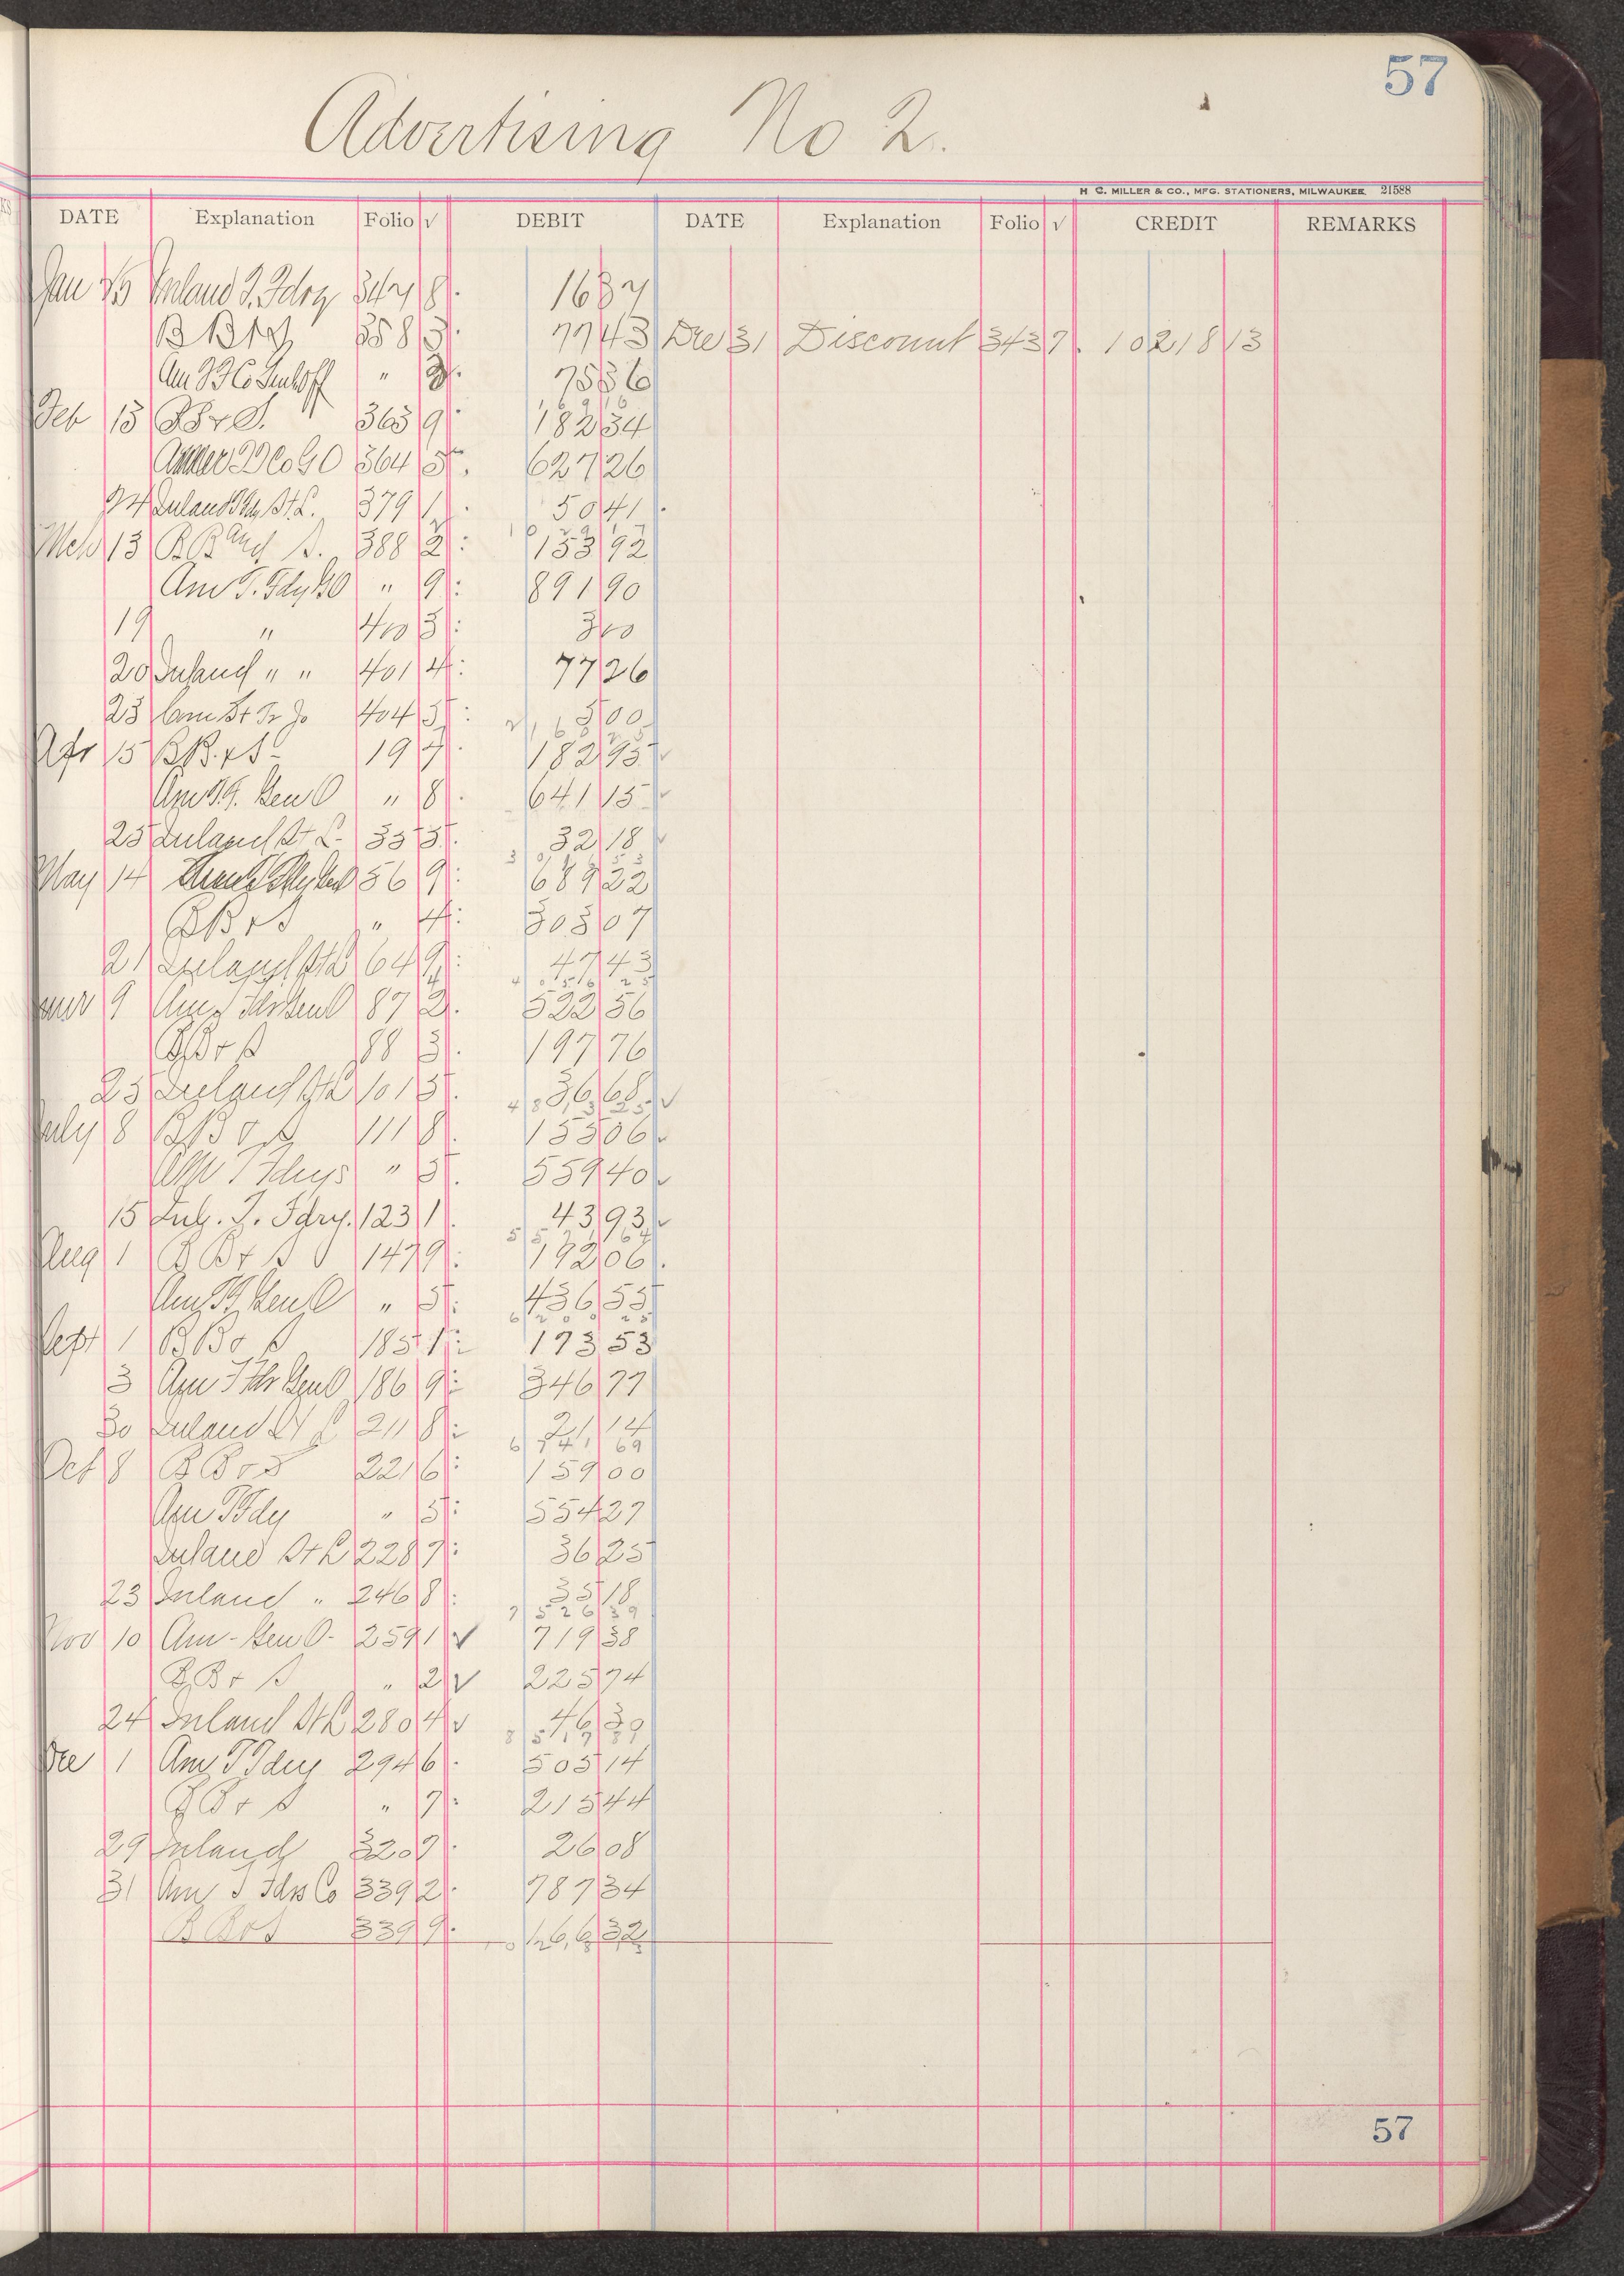 57
Advertising No 2.
H. C. MILLER & CO., MFG. STATIONERS, MILWAUKEE 21588
DATE Explanation Folio √ DEBIT DATE Explanation Folio √ CREDIT REMARKS
Jan Inland T. Fdry 347 8 16 87
358 3 77 43 Dec 31 Discount 343 7 10218 13
Am " 75 86
Feb 13 363 9 182 34
Co G O 364 5 627 26
24 Inland St L. 379 1 50 41
Mch 13 BB and S. 388 2 153 92
Am T. Fdy GO " 9 891 90
19 " 400 3 3 00
20 Inland " " 401 4 77 26
23 404 5 5 00
Apr 15 BB & S 19 7 182 95
Am T.F. Gen O " 8 641 15
25 Inland St L 33 5 32 18
May 14 56 9 689 22
BB & S " 4 303 07
21 Inland St L 64 9 47 43
9 Am Gen O 87 2 522 56
BB & S 88 3 197 76
23 Inland St L 101 5 36 68
July 8 BB & S 111 8 155 06
Am T Fdys " 5 559 40
15 Inl. T. Fdry. 123 1 43 93
Aug 1 BB & S 147 9 192 06
Am T F Gen O " 5 436 55
Sept 1 BB & S 185 1 173 53
3 Am T Fdr Gen O 186 9 346 77
30 Inland St L 211 8 21 14
Oct 8 BB & S 221 6 159 00
Am T Fdy " 5 554 27
Inland St L 228 7 36 25
23 Inland " 246 8 35 18
Nov 10 Am - Gen O - 259 1 √ 719 38
BB & S " 2 √ 225 74
24 Inland St L 280 4 √ 46 39
Dec 1 Am T Fdy 294 6 505 14
BB & S " 7 215 44
29 Inland 320 7 26 08
31 Am T Fdrs Co 339 2 787 34
BB & S 339 9 166 32
57